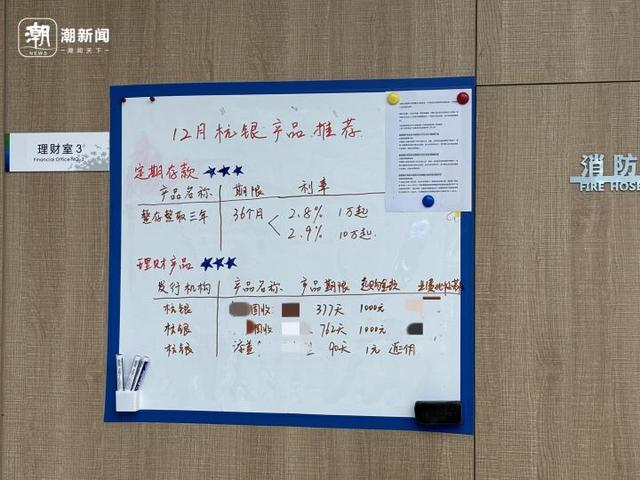 潮 潮新闻
NEWS 潮闻天下
理财室 3
Financial Office NO.3
消防
FIRE HOSE
12月杭银产品推荐
定期存款 ★★★
产品名称 期限 利率
整存整取三年 36个月 2.8% 1万起
2.9% 10万起
理财产品 ★★★
发行机构 产品名称 产品期限 起购金额
杭银 固收 377天 1000元
杭银 固收 762天 1000元
杭银 添益 90天 1元 近一月